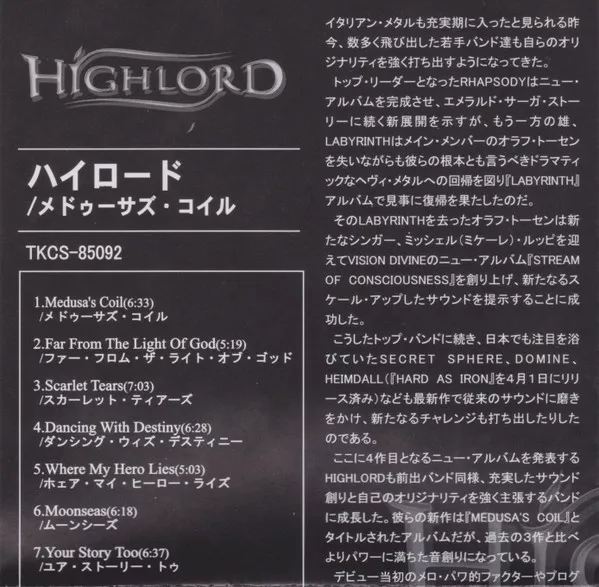 HIGHLORD
ハイロード
/メドゥーサズ・コイル
TKCS-85092
1.Medusa's Coil(6:33)
/メドゥーサズ・コイル
2.Far From The Light Of God(5:19)
/ファー・フロム・ザ・ライト・オブ・ゴッド
3.Scarlet Tears(7:03)
/スカーレット・ティアーズ
4.Dancing With Destiny(6:28)
/ダンシング・ウィズ・デスティニー
5.Where My Hero Lies(5:03)
/ホェア・マイ・ヒーロー・ライズ
6.Moonseas(6:18)
/ムーンシーズ
7.Your Story Too(6:37)
/ユア・ストーリー・トゥ
イタリアン・メタルも充実期に入ったと見られる昨
今、数多く飛び出した若手バンド達も自らのオリ
ジナリティを強く打ち出すようになってきた。
トップ・リーダーとなったRHAPSODYはニュー・
アルバムを完成させ、エメラルド・サーガ・ストー
リーに続く新展開を示すが、もう一方の雄、
LABYRINTHはメイン・メンバーのオラフ・トーセン
を失いながらも彼らの根本とも言うべきドラマティ
ックなヘヴィ・メタルへの回帰を図り『LABYRINTH』
アルバムで見事に復帰を果たしたのだ。
そのLABYRINTHを去ったオラフ・トーセンは新
たなシンガー、ミッシェル(ミケーレ)・ルッピを迎
えてVISION DIVINEのニュー・アルバム『STREAM
OF CONSCIOUSNESS』を創り上げ、新たなるス
ケール・アップしたサウンドを提示することに成
功した。
こうしたトップ・バンドに続き、日本でも注目を浴
びていたSECRET SPHERE、DOMINE、
HEIMDALL(『HARD AS IRON』を4月1日にリリ
ース済み)なども最新作で従来のサウンドに磨き
をかけ、新たなるチャレンジも打ち出したりした
のである。
ここに4作目となるニュー・アルバムを発表する
HIGHLORDも前出バンド同様、充実したサウンド
創りと自己のオリジナリティを強く主張するバンド
に成長した。彼らの新作は『MEDUSA'S COIL』と
タイトルされたアルバムだが、過去の3作と比べ
よりパワーに満ちた音創りになっている。
デビュー当初のメロ・パワ的ファクターやプログ